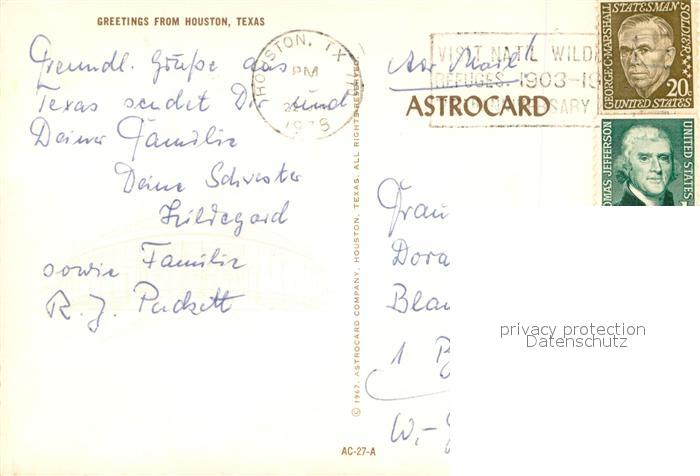 GREETINGS FROM HOUSTON, TEXAS
Freundl. Grüße aus
Texas sendet Dir und
Deiner Familie
Deine Schwester
Hildegard
sowie Familie
R. J. Puckett
HOUSTON, TX
PM
1978
VISIT NAT'L WILD
REFUGES. 1903-19
SARY
Air Mail
ASTROCARD
GEORGE C. MARSHALL
STATESMAN
SOLDIER
20c
UNITED STATES
OMAS JEFFERSON
UNITED STATES
© 1967, ASTROCARD COMPANY, HOUSTON, TEXAS. ALL RIGHTS RESERVED
Frau
Dora
Blau
1 B
W.-
privacy protection
Datenschutz
AC-27-A